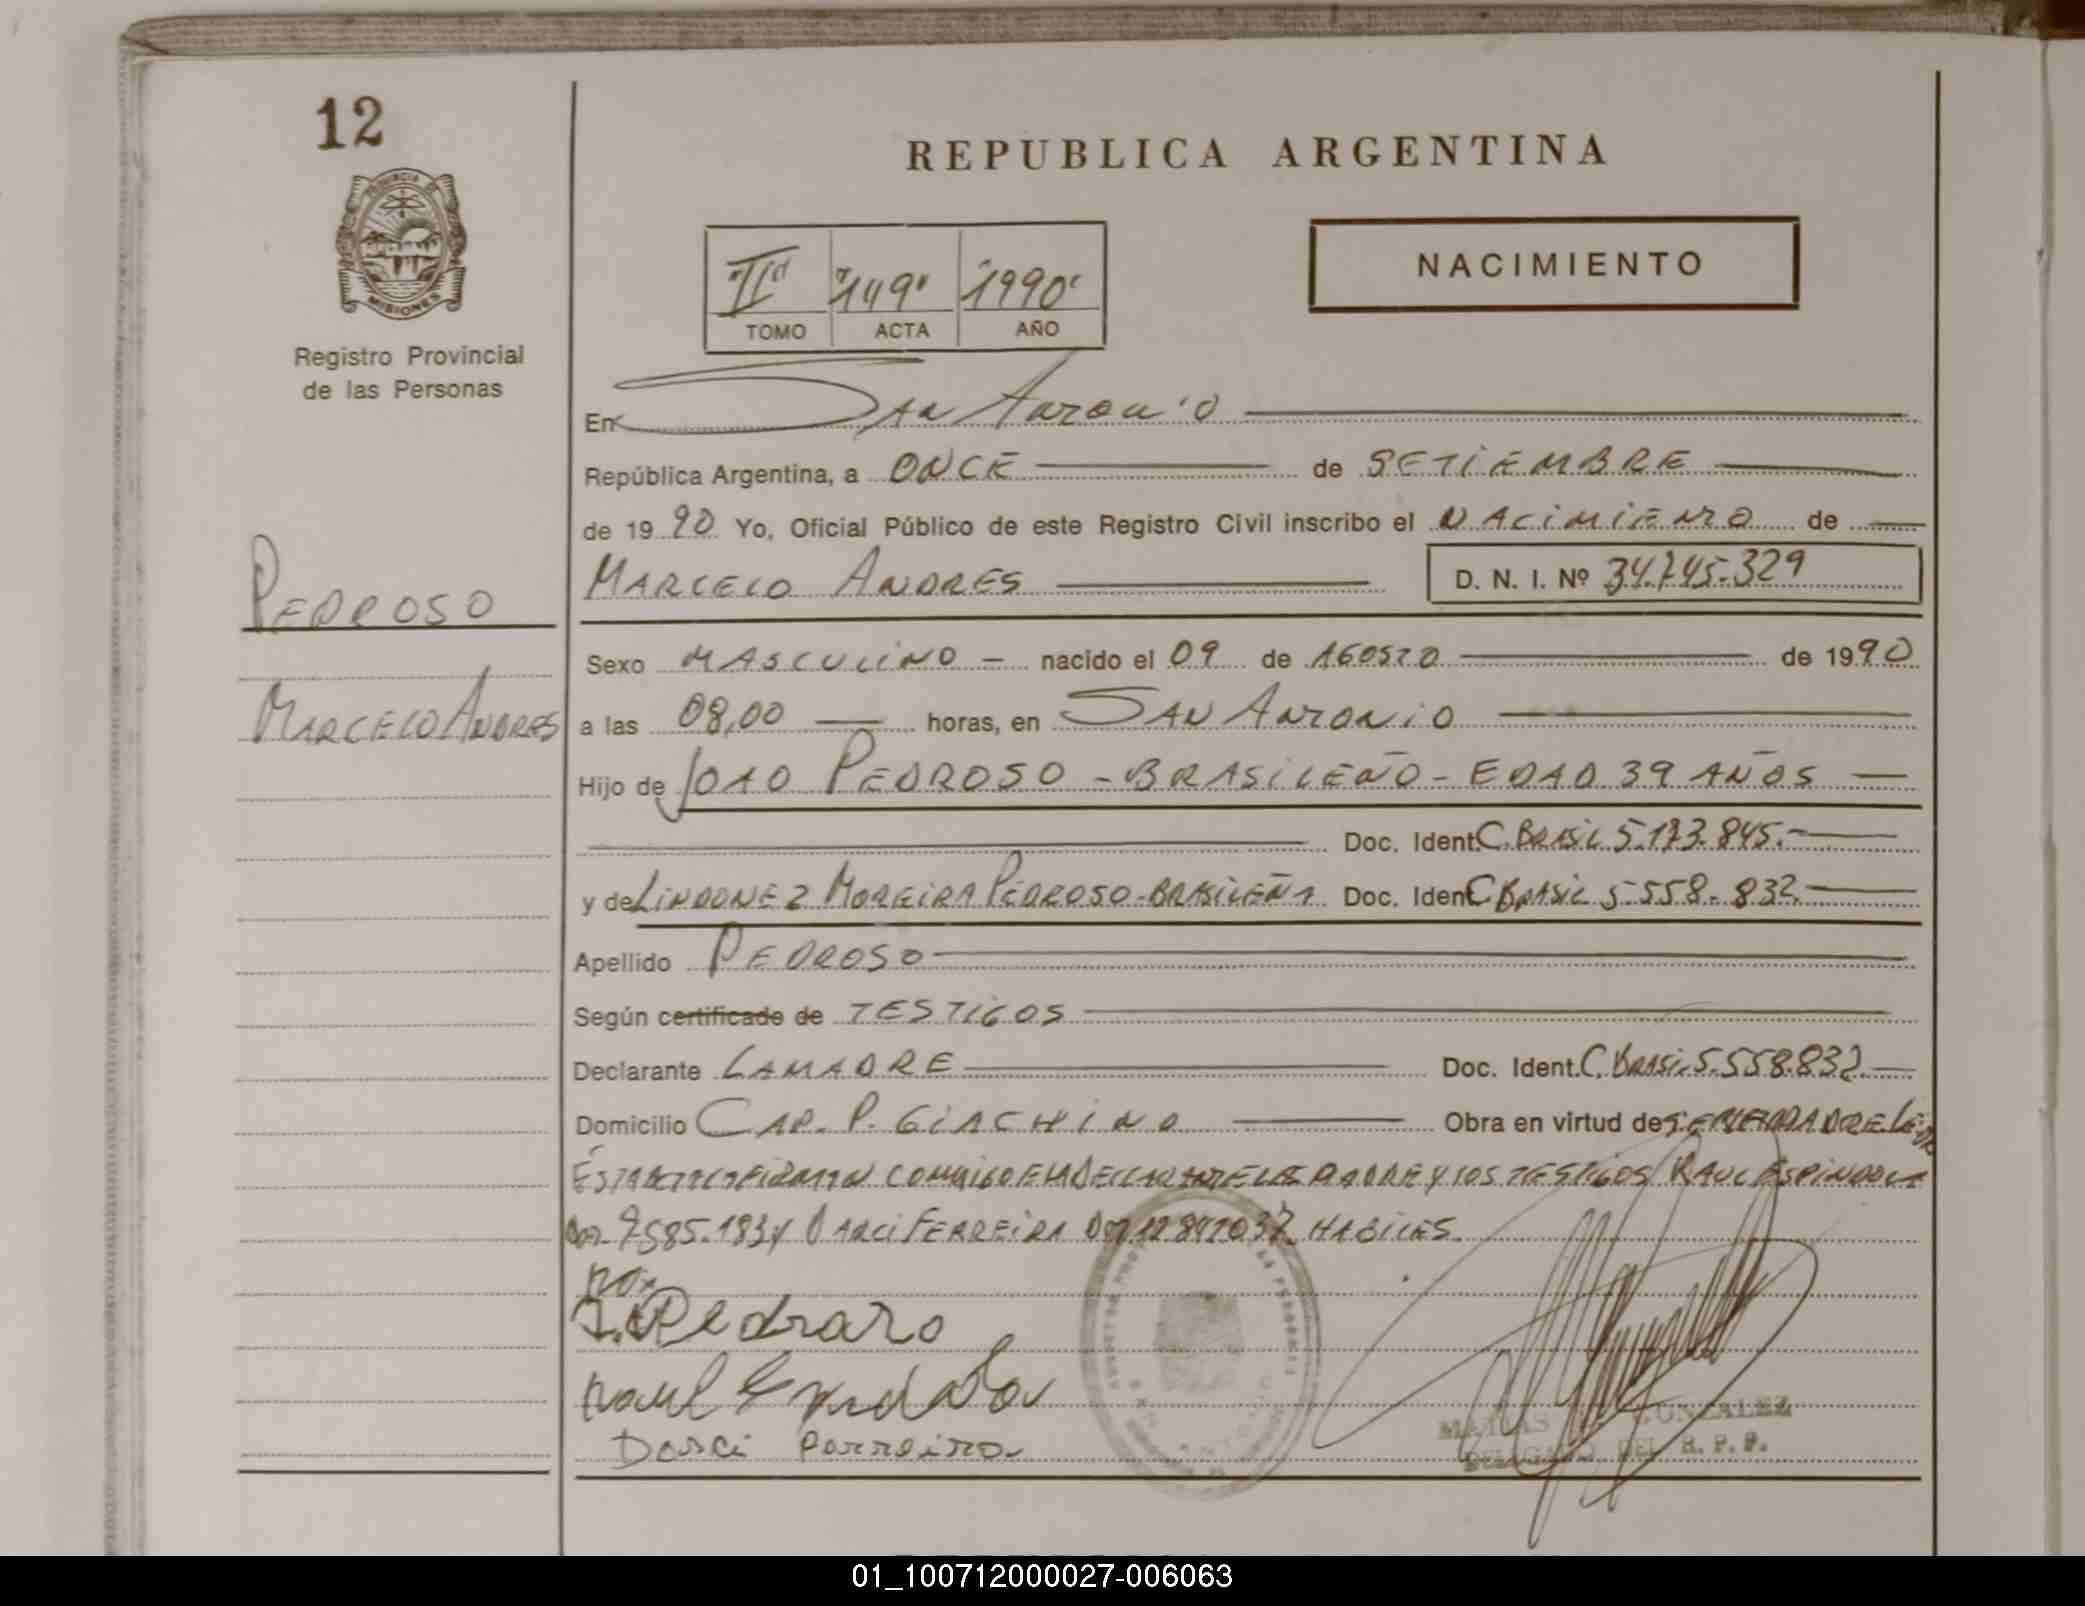 12
REPUBLICA ARGENTINA
PROVINCIA DE
MISIONES
NACIMIENTO
II "149" "1990"
TOMO ACTA AÑO
Registro Provincial
de las Personas
En San Antonio
República Argentina, a ONCE de SETIEMBRE
de 1990 Yo, Oficial Público de este Registro Civil inscribo el NACIMIENTO de
MARCELO ANDRES D. N. I. Nº 34.745.329
PEDROSO
MARCELO ANDRES
Sexo MASCULINO nacido el 09 de AGOSTO de 1990
a las 08,00 horas, en SAN ANTONIO
Hijo de JOAO PEDROSO - BRASILEÑO - EDAD 39 AÑOS
Doc. Ident. C. BRASIL 5.173.845.-
y de LINDONEZ MOREIRA PEDROSO - BRASILEÑA Doc. Ident C BRASIL 5-558-832
Apellido PEDROSO
Según certificado de TESTIGOS
Declarante LA MADRE Doc. Ident. C. BRASIL 5.558.832
Domicilio CAP. P. GIACHINO Obra en virtud de
CONMIGO LA MADRE Y LOS TESTIGOS RAUL ESPINDOLA
DARCI FERREIRA HABILES
Raul
Darci Ferreira
MATIAS GONZALEZ
DELEGADO DEL R. P. P.
01_100712000027-006063